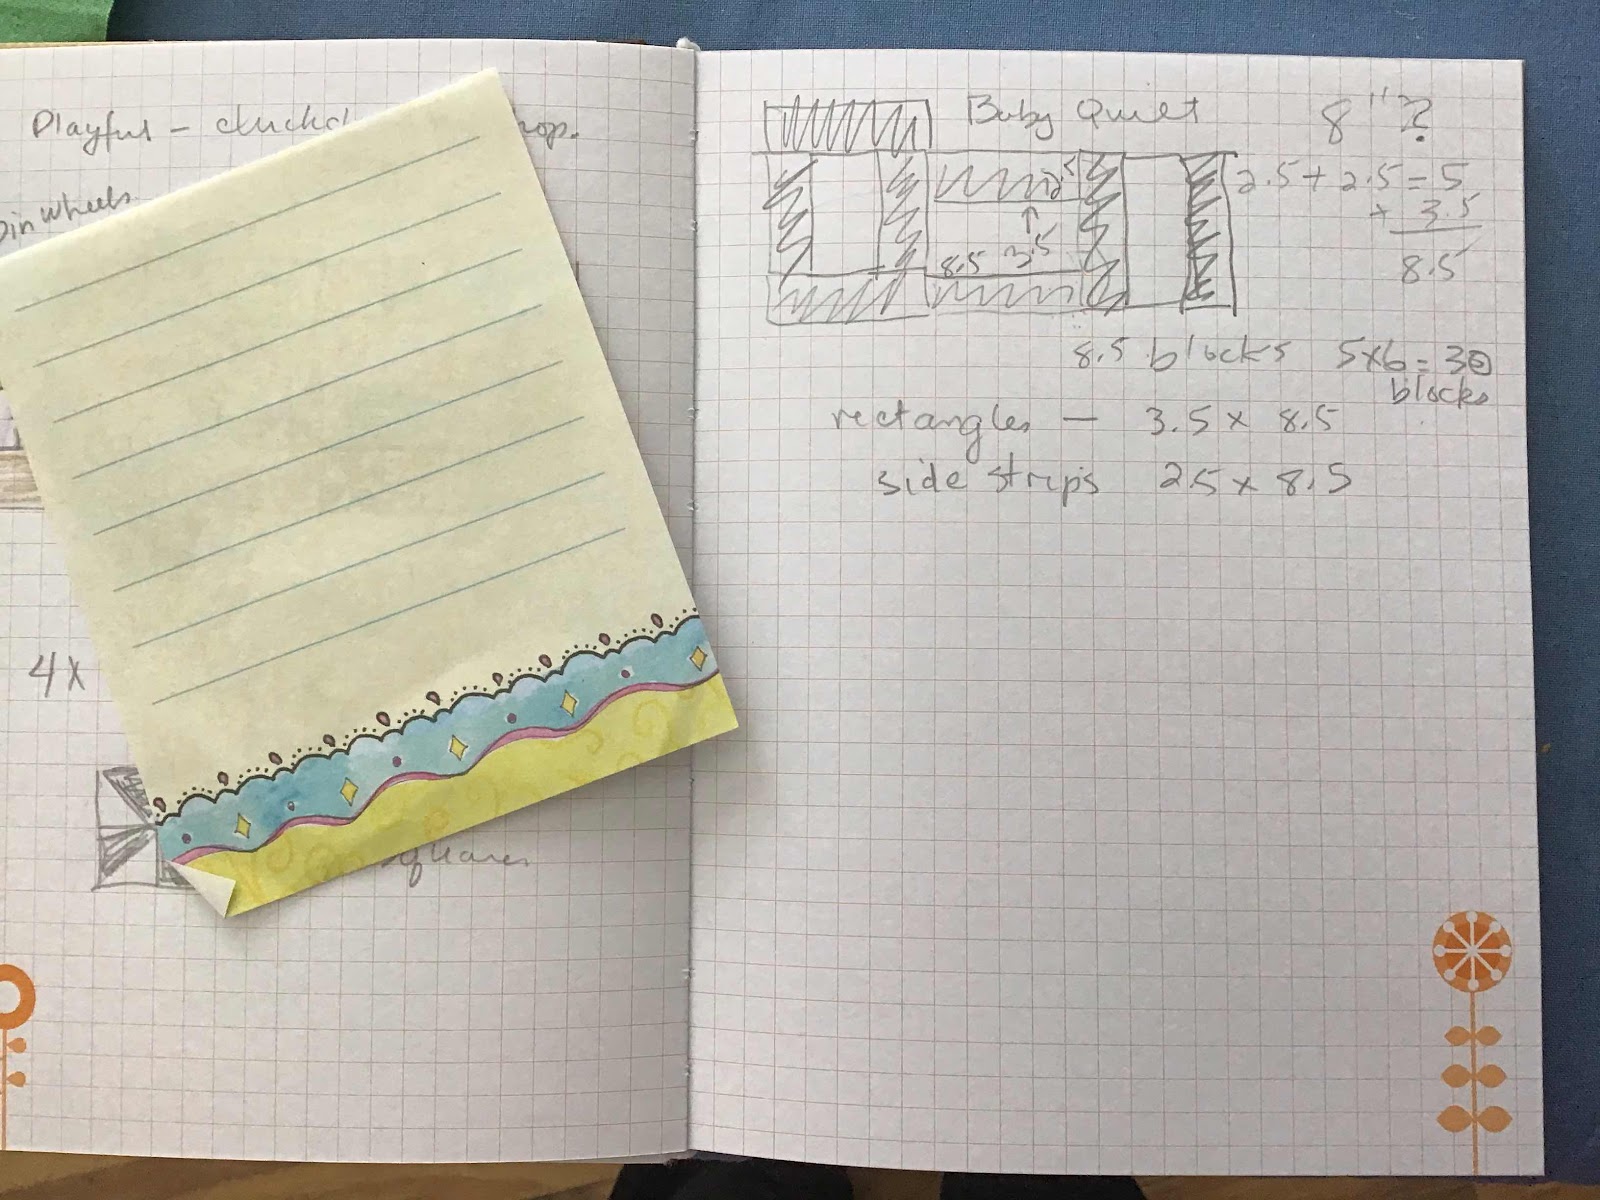 Playful -
pinwheels.
4x
squares
Baby Quilt
8"?
2.5 + 2.5 = 5
+ 3.5
8.5
2.5
↑
8.5 3.5
8.5 blocks
5x6 = 30
blocks
rectangles — 3.5 x 8.5
side strips 2.5 x 8.5